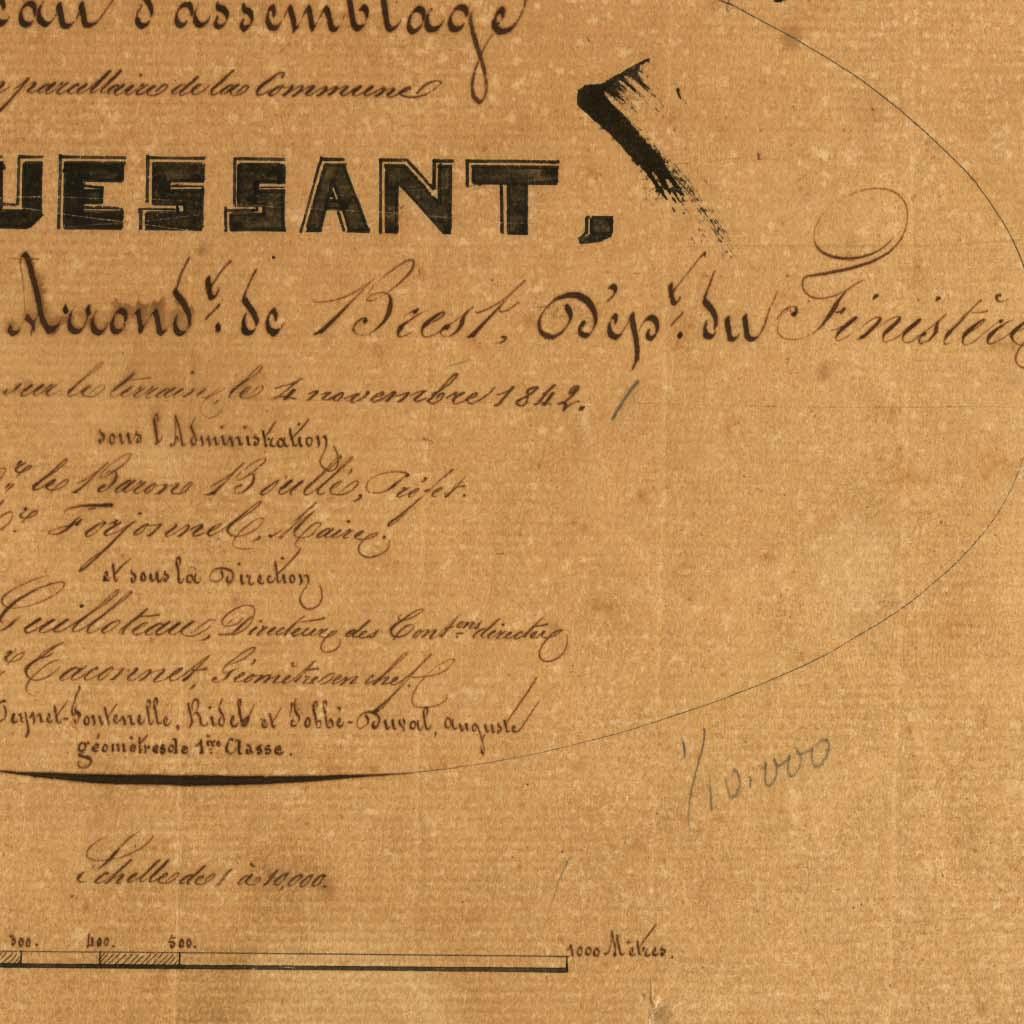 d'assemblage
parcellaire de la Commune
UESSANT,
Arrond.t de Brest, Dép.t du Finistère
sur le terrain, le 4 novembre 1842.
sous l'Administration
le Baron Boullé, Préfet.
Forjonnel, Maire.
et sous la Direction
Guilloteau, Directeur des Cont.ons directes
Taconnet, Géomètre en chef.
Ridel et Jobbé-Duval, auguste
géomètres de 1ère Classe.
1/10.000
Echelle de 1 à 10,000.
300. 400. 500. 1000 Mètres.